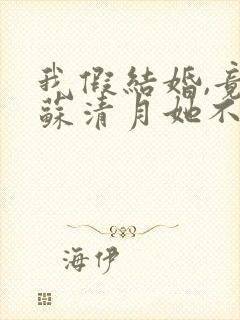 我假結婚,竟
蘇清月她不
海伊